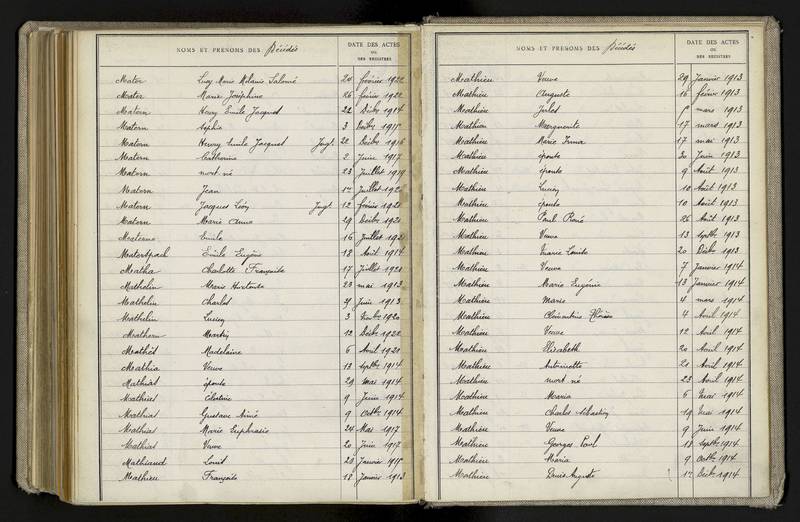 NOMS ET PRENOMS DES Décédés
DATE DES ACTES
OU
DES REGISTRES
Mater Lucy Marie Mélanie Salomé 20 février 1922
Mater Marie Joséphine 26 février 1922
Matern Henry Emile Jacques 22 Décbr 1914
Matern Sophie 3 1915
Matern Henry Emile Jacques Jugt. 22 Décbr 1916
Matern Catherine 2 Juin 1917
Matern mort né 23 Juillet 1919
Matern Jean Juillet
Matern Jacques Léon Jugt 12 février
Matern Marie Anna 29 Décbr
Materne Emile 16 Juillet
Matertpach Emile Eugène 18 Août 1914
Matha Charlotte Françoise 17 Juillet
Mathelin Marie Hortense 23 mai 1913
Mathelin Charles Juin 1913
Mathelin Lucien 3
Mathern Martin 12 Décbr 1922
Mathès Madeleine 6 Avril
Mathia Veuve 13 septbre 1914
Mathias épouse 29 Mai 1914
Mathias Célestine 9 Juin 1914
Mathias Gustave Aimé 9 Octbre 1914
Mathias Marie Euphrasie 24 Mai 1917
Mathias Veuve 20 Juin 1917
Mathiaud Louis 23 Janvier 1917
Mathieu Françoise 18 Janvier 1913
NOMS ET PRENOMS DES Décédés
DATE DES ACTES
OU
DES REGISTRES
Mathieu Veuve 29 Janvier 1913
Mathieu Auguste 16 février 1913
Mathieu Jules mars 1913
Mathieu Marguerite 17 mars 1913
Mathieu Marie Irma 17 mai 1913
Mathieu épouse 30 Juin 1913
Mathieu épouse 9 Août 1913
Mathieu Lucien 10 Août 1913
Mathieu épouse 10 Août 1913
Mathieu Paul René 26 Août 1913
Mathieu Veuve 13 Septbr 1913
Mathieu Marie Louise 20 Décbr 1913
Mathieu Veuve 7 Janvier 1914
Mathieu Marie Eugénie 13 Janvier 1914
Mathieu Marie 4 mars 1914
Mathieu Clémentine Thérèse 4 Avril 1914
Mathieu Veuve 12 Avril 1914
Mathieu Elisabeth 20 Avril 1914
Mathieu Antoinette 20 Avril 1914
Mathieu mort né 23 Avril 1914
Mathieu Maria 6 Mai 1914
Mathieu Charles Sébastien 19 Mai 1914
Mathieu Veuve 9 Juin 1914
Mathieu Georges Paul 18 Septbr 1914
Mathieu Maria 9 Octbr 1914
Mathieu Denis Auguste Décbr 1914